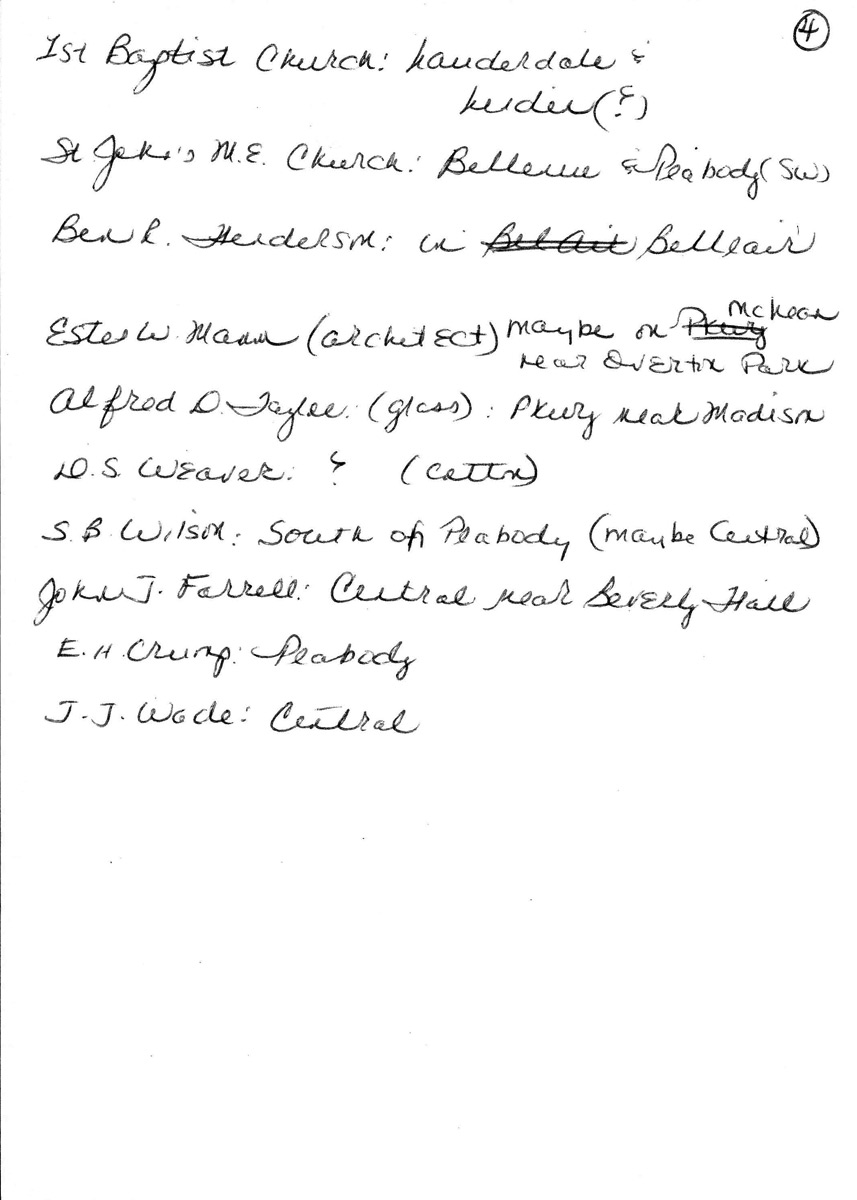 4
1st Baptist Church: Lauderdale &
Linden (?)
St John's M.E. Church: Bellevue & Peabody (SW)
Ben R. Henderson: in Bel Air Belleair
Estes W. Mann (architect) maybe on Pkwy McLean
near Overton Park
Alfred D. Taylor (glass): Pkwy near Madison
D.S. Weaver: ? (Cotton)
S.B. Wilson: South of Peabody (maybe Central)
John T. Farrell: Central near Beverly Hall
E.H. Crump: Peabody
J.J. Wade: Central